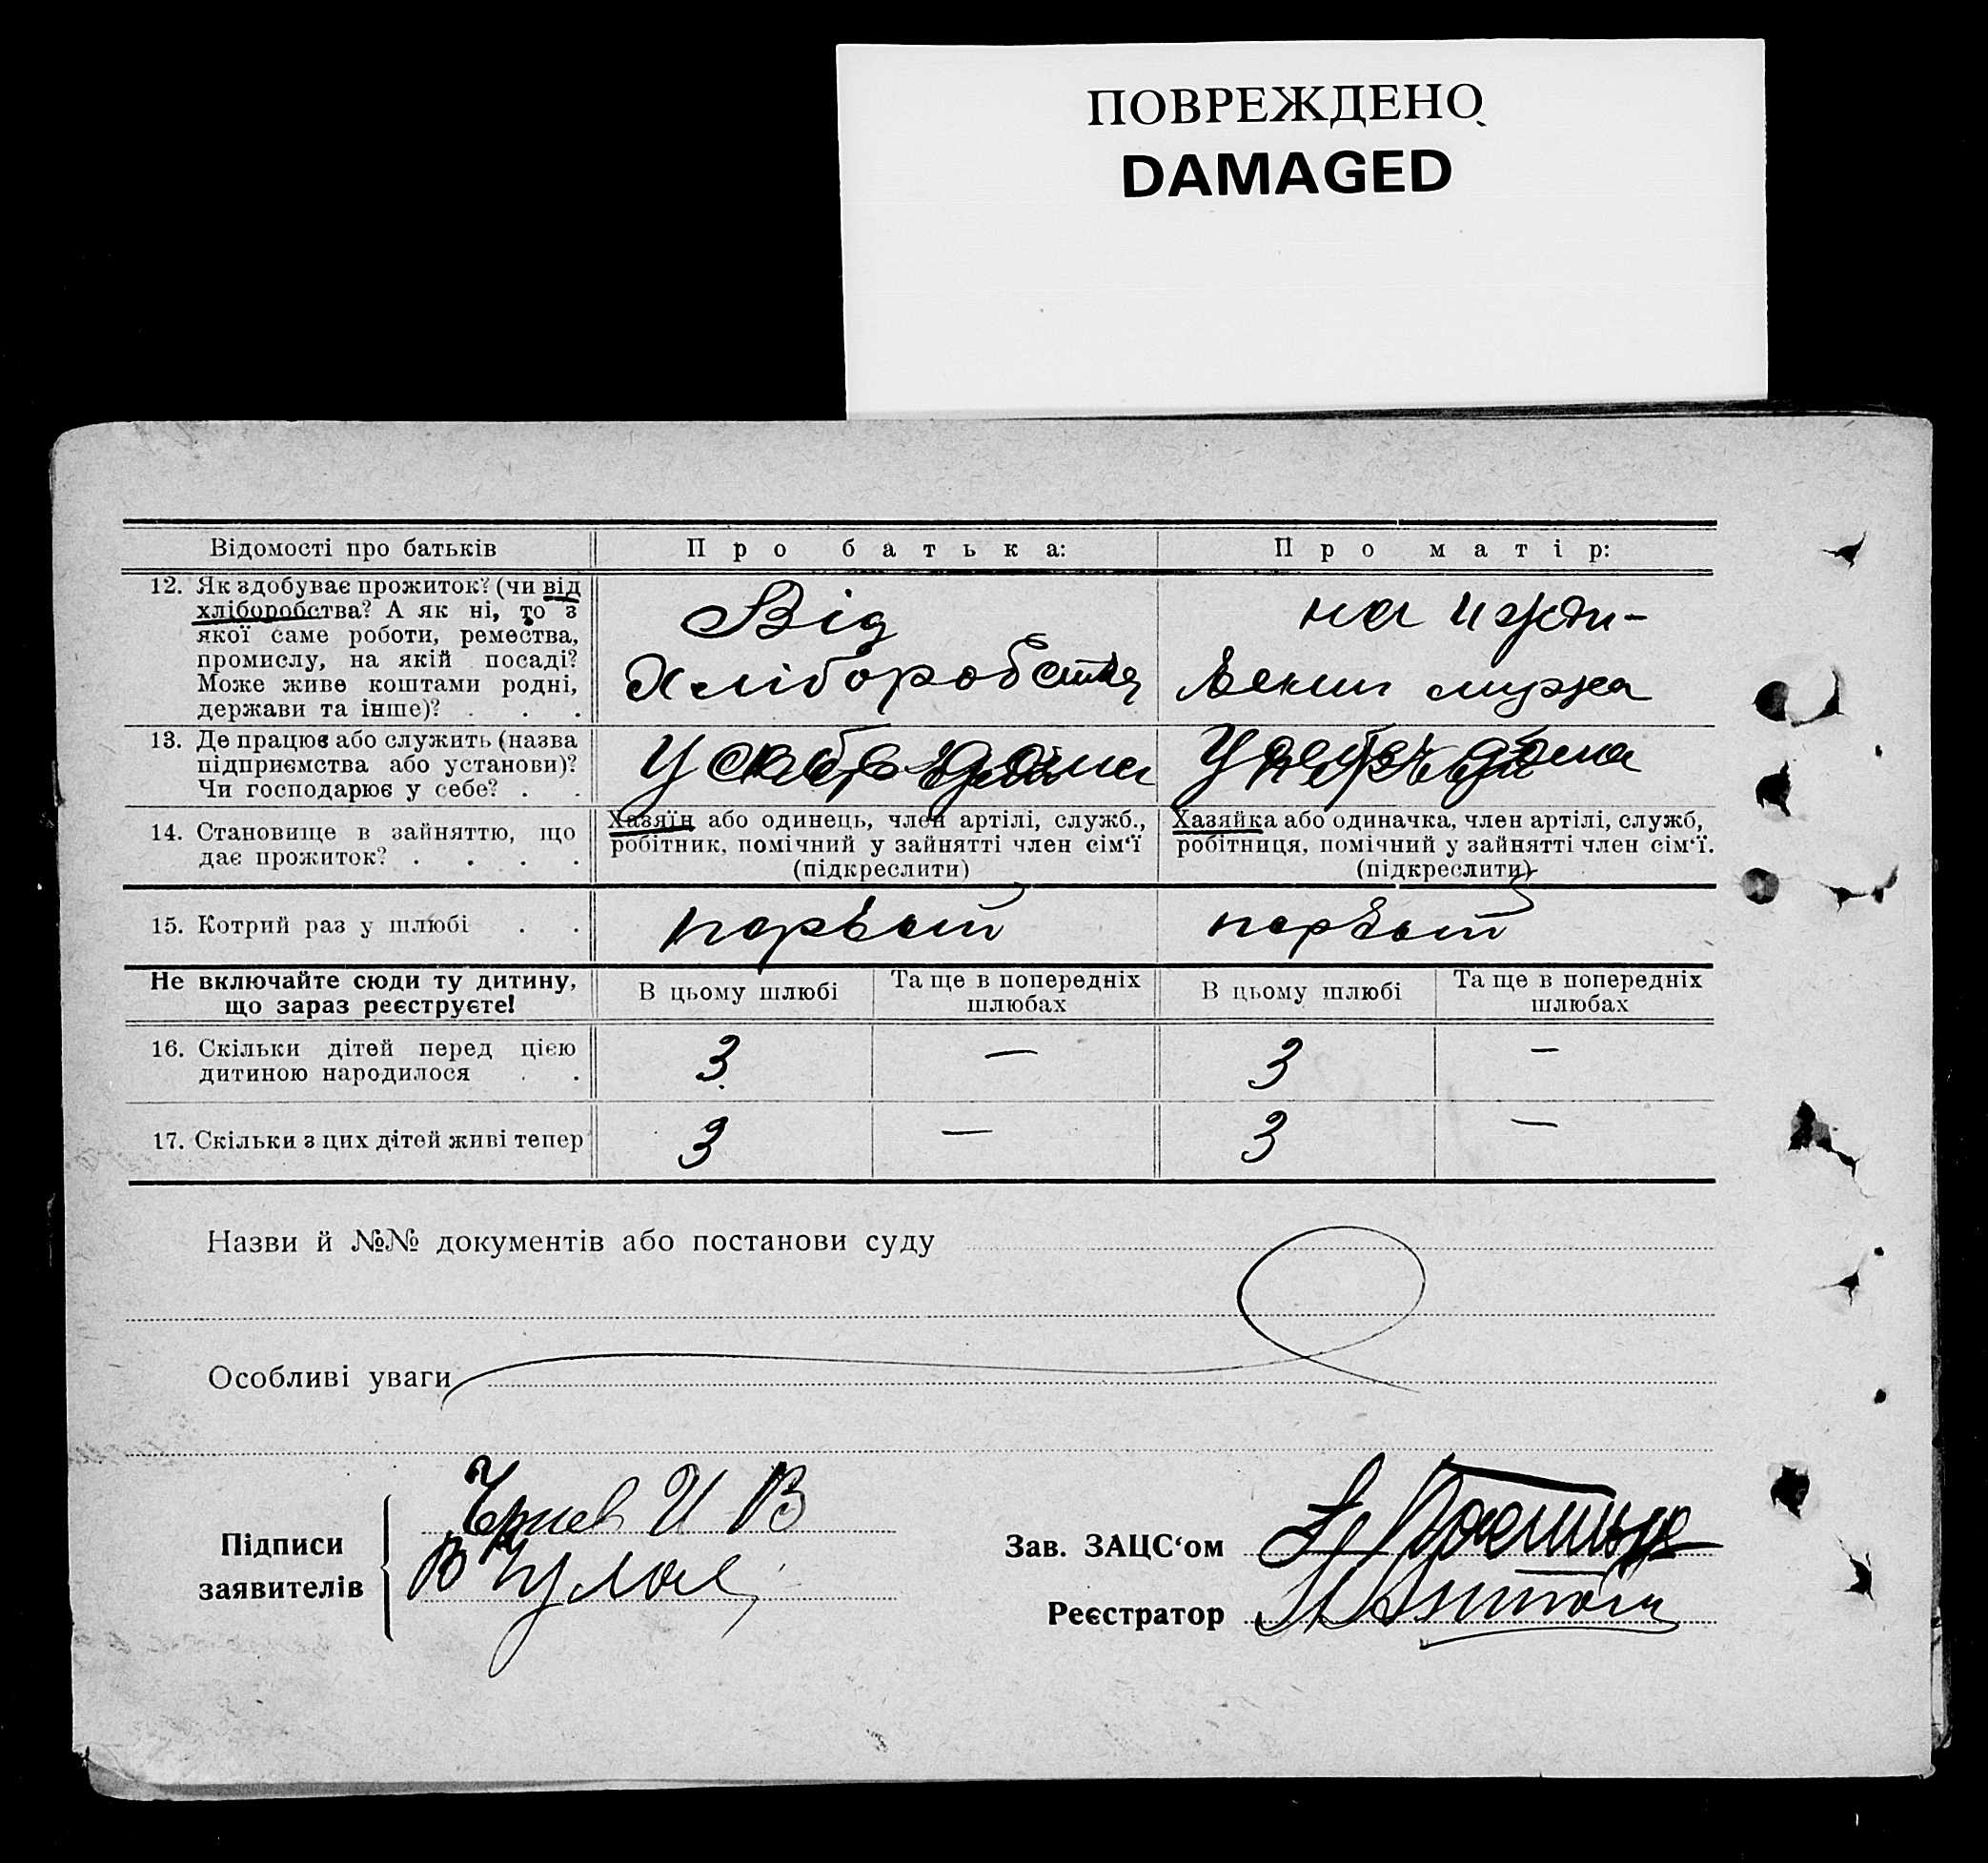 ПОВРЕЖДЕНО
DAMAGED
Відомості про батьків
Про батька:
Про матір:
12. Як здобуває прожиток? (чи від
хліборобства? А як ні, то з
якої саме роботи, ремества,
промислу, на якій посаді?
Може живе коштами родні,
держави та інше)? . . .
Від
Хліборобства
на ижди-
вении мужа
13. Де працює або служить (назва
підприємства або установи)?
Чи господарює у себе? . .
У себе дома
У себе дома
14. Становище в зайняттю, що
дає прожиток? . . . .
Хазяїн або одинець, член артілі, служб.,
робітник, помічний у зайнятті член сім‘ї
(підкреслити)
Хазяйка або одиначка, член артілі, служб,
робітниця, помічний у зайнятті член сім‘ї.
(підкреслити)
15. Котрий раз у шлюбі . .
первый
первый
Не включайте сюди ту дитину,
що зараз реєструєте!
В цьому шлюбі
Та ще в попередніх
шлюбах
В цьому шлюбі
Та ще в попередніх
шлюбах
16. Скільки дітей перед цією
дитиною народилося . .
3
—
3
—
17. Скільки з цих дітей живі тепер
3
—
3
—
Назви й №№ документів або постанови суду
Особливі уваги
Підписи
заявителів
И В
В
Зав. ЗАЦС‘ом
Реєстратор